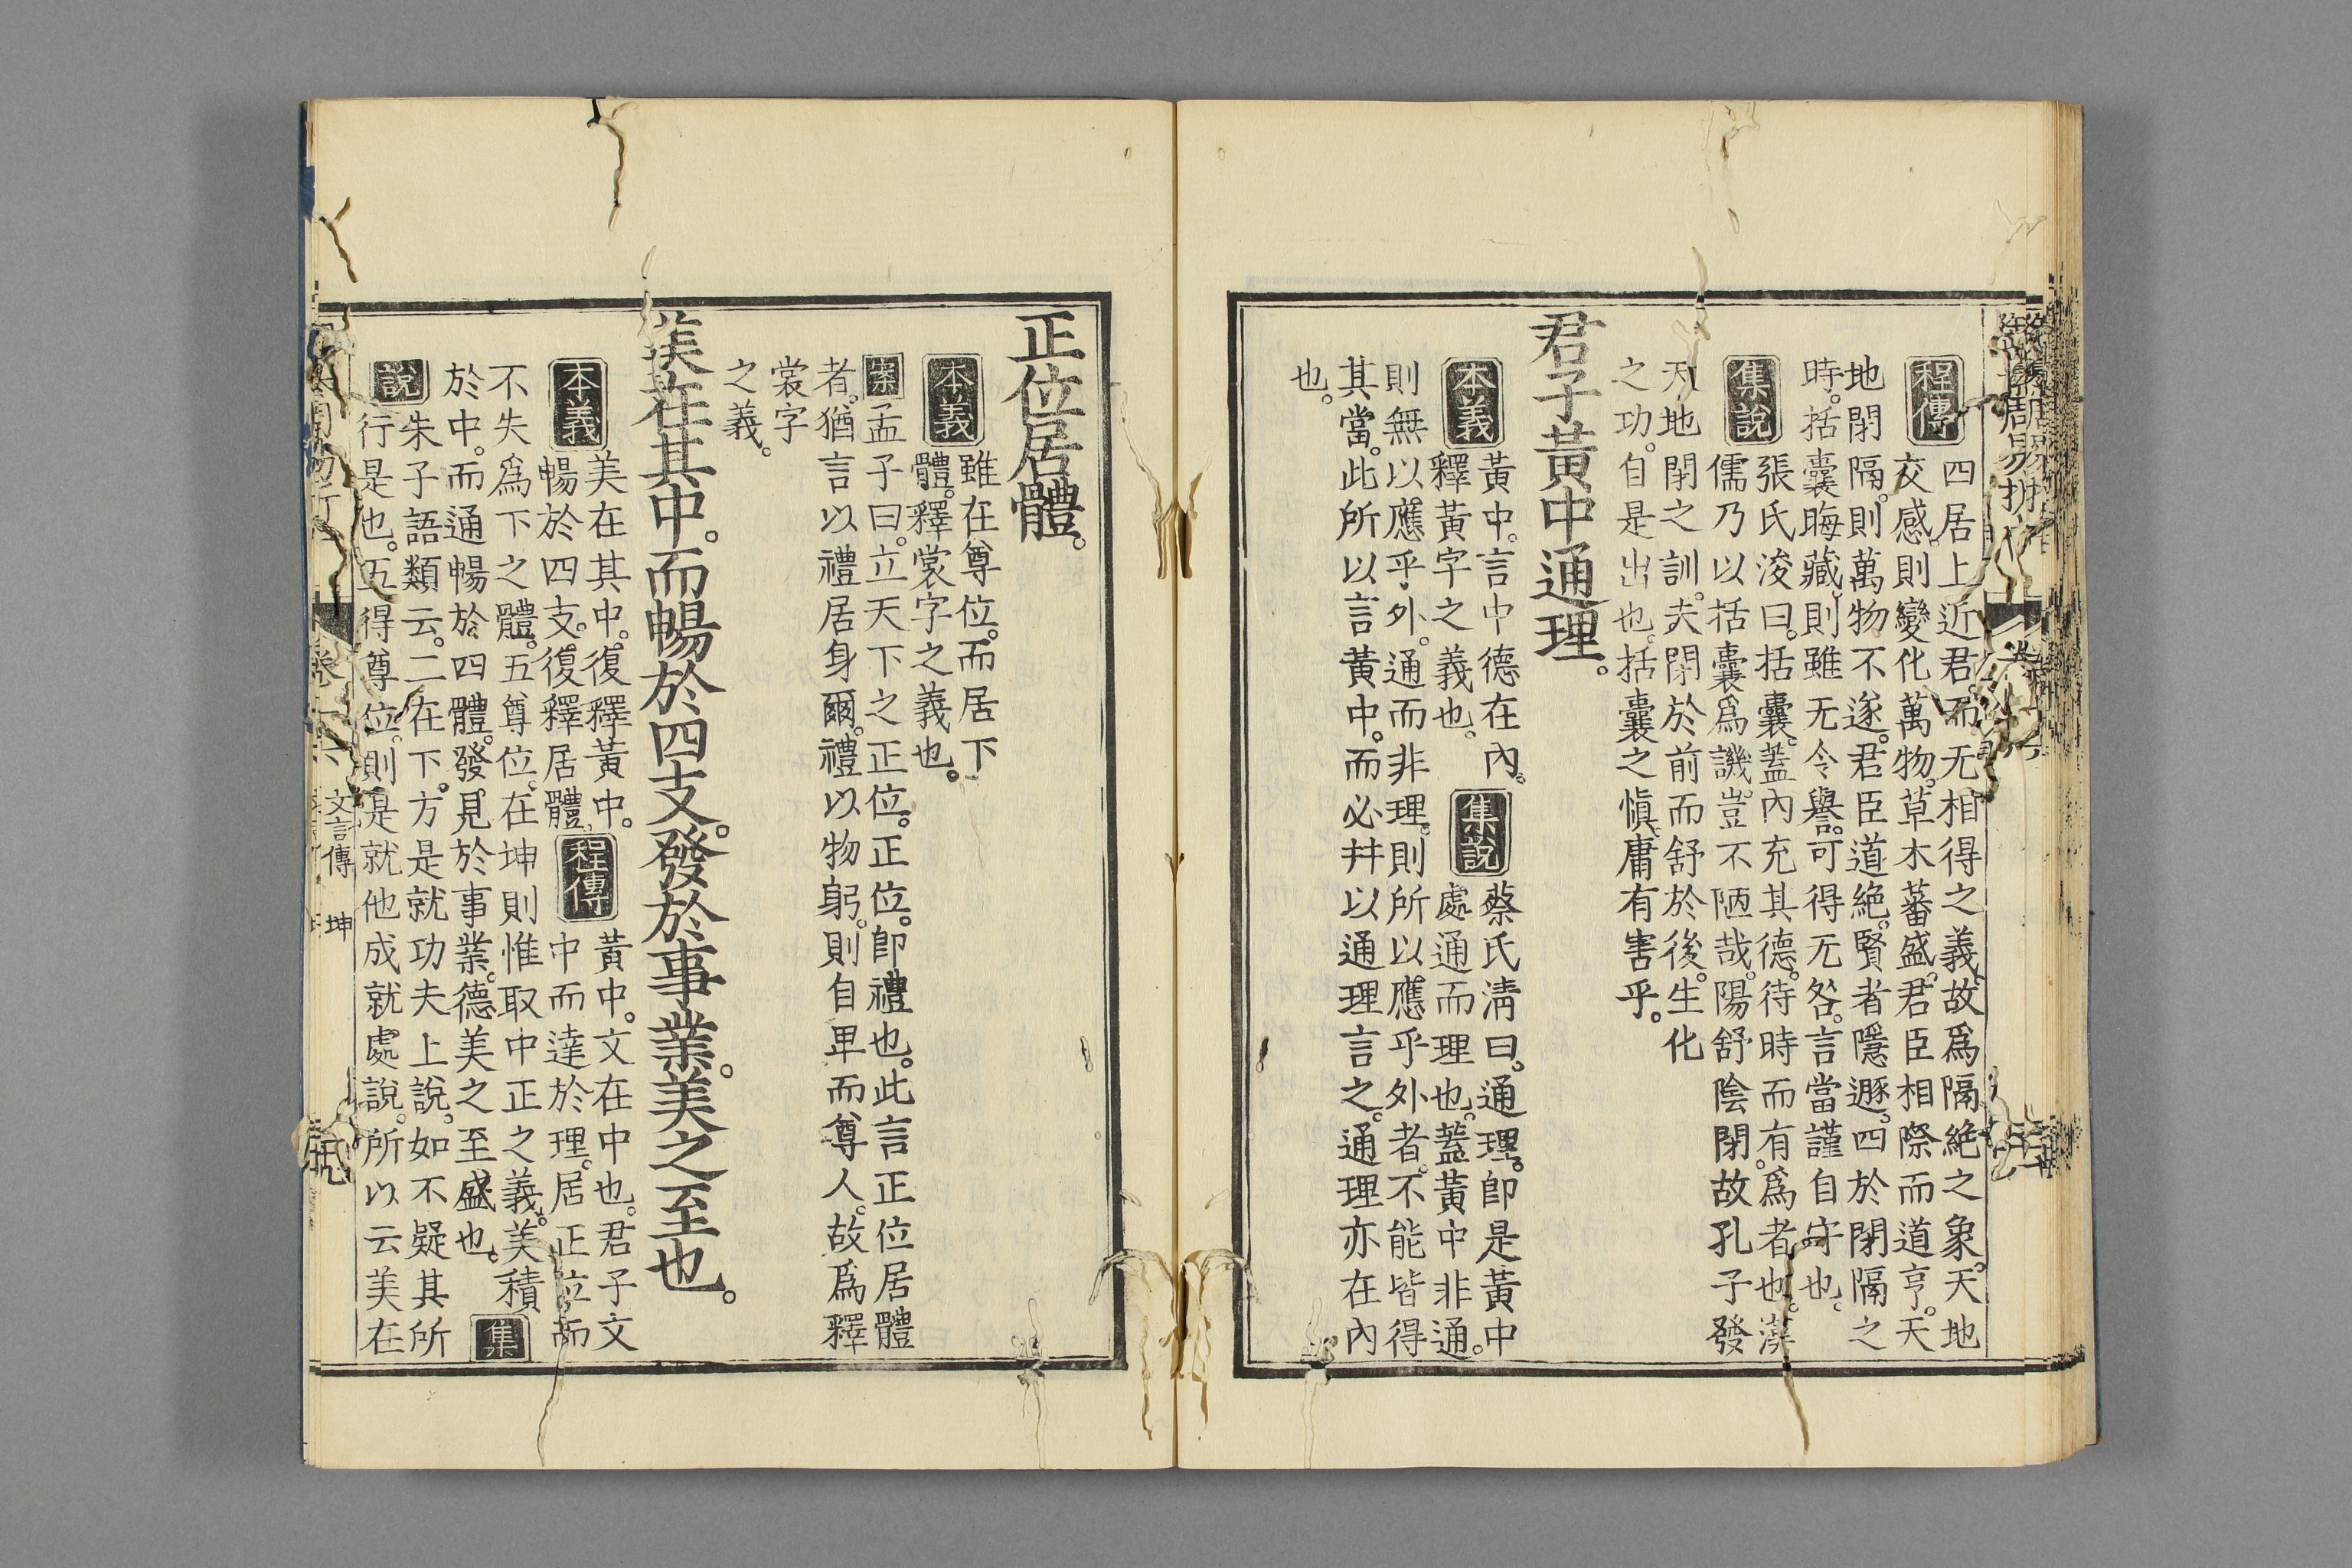 程傳
四居上近君。而无相得之義。故爲隔絶之象。天地
交感。則變化萬物。草木蕃盛。君臣相際而道亨。天
地閉隔。則萬物不遂。君臣道絶。賢者隱遯。四於閉隔之
時。括囊晦藏。則雖无令譽。可得无咎。言當謹自守也。
集說
張氏浚曰。括囊。蓋內充其德。待時而有爲者也。漢
儒乃以括囊爲譏。豈不陋哉。陽舒陰閉。故孔子發
天地閉之訓。夫閉於前而舒於後。生化
之功。自是出也。括囊之愼。庸有害乎。
君子黃中通理。
本義
黃中。言中德在內。
釋黃字之義也。
集說
蔡氏淸曰。通理。卽是黃中
處通而理也。蓋黃中非通。
則無以應乎外。通而非理。則所以應乎外者。不能皆得
其當。此所以言黃中。而必幷以通理言之。通理亦在內
也。
正位居體。
本義
雖在尊位。而居下
體。釋裳字之義也。
案
孟子曰。立天下之正位。正位。卽禮也。此言正位居體
者。猶言以禮居身爾。禮以物躬。則自卑而尊人。故爲釋
裳字
之義。
美在其中。而暢於四支。發於事業。美之至也。
本義
美在其中。復釋黃中。
暢於四支。復釋居體。
程傳
黃中。文在中也。君子文
中而達於理。居正位而
不失爲下之體。五尊位。在坤則惟取中正之義。美積
於中。而通暢於四體。發見於事業。德美之至盛也。
集
說
朱子語類云。二在下。方是就功夫上說。如不疑其所
行是也。五得尊位。則是就他成就處說。所以云美在
文言傳 坤